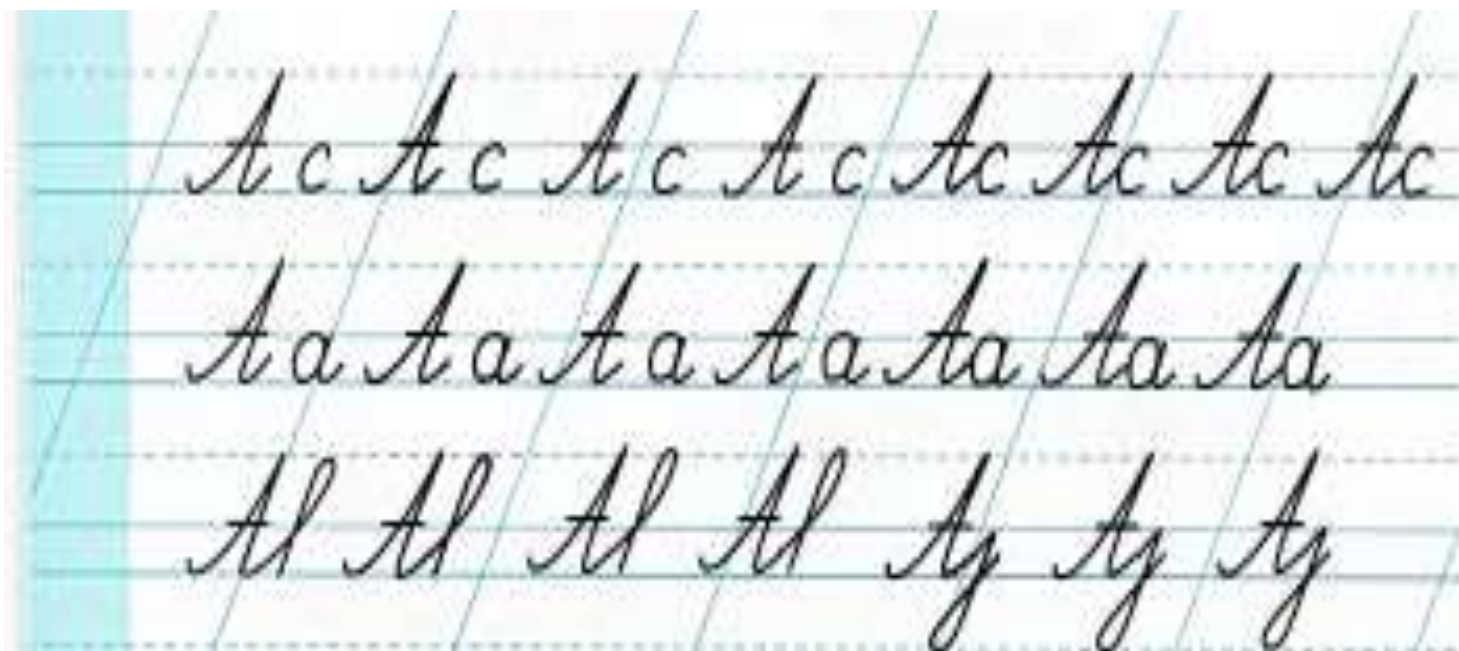 A c A c A c A c Ac Ac Ac Ac
A a A a A a A a Aa Aa Aa
Al Al Al Al Aj Aj Aj